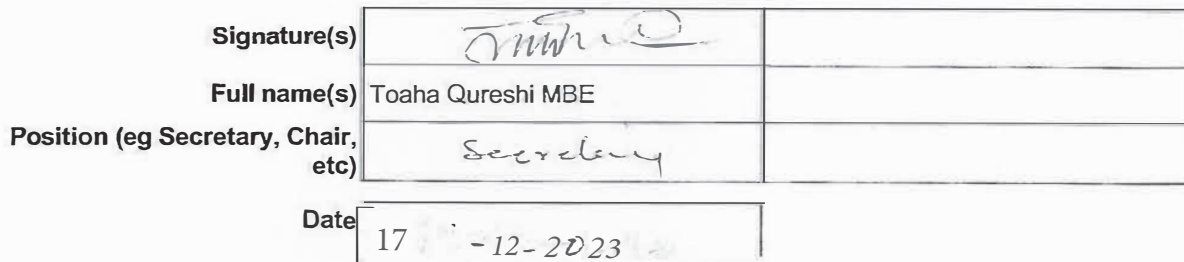 Signature(s)
Full name(s) Toaha Qureshi MBE
Position (eg Secretary, Chair, etc) Secretary
Date 17 -12-2023